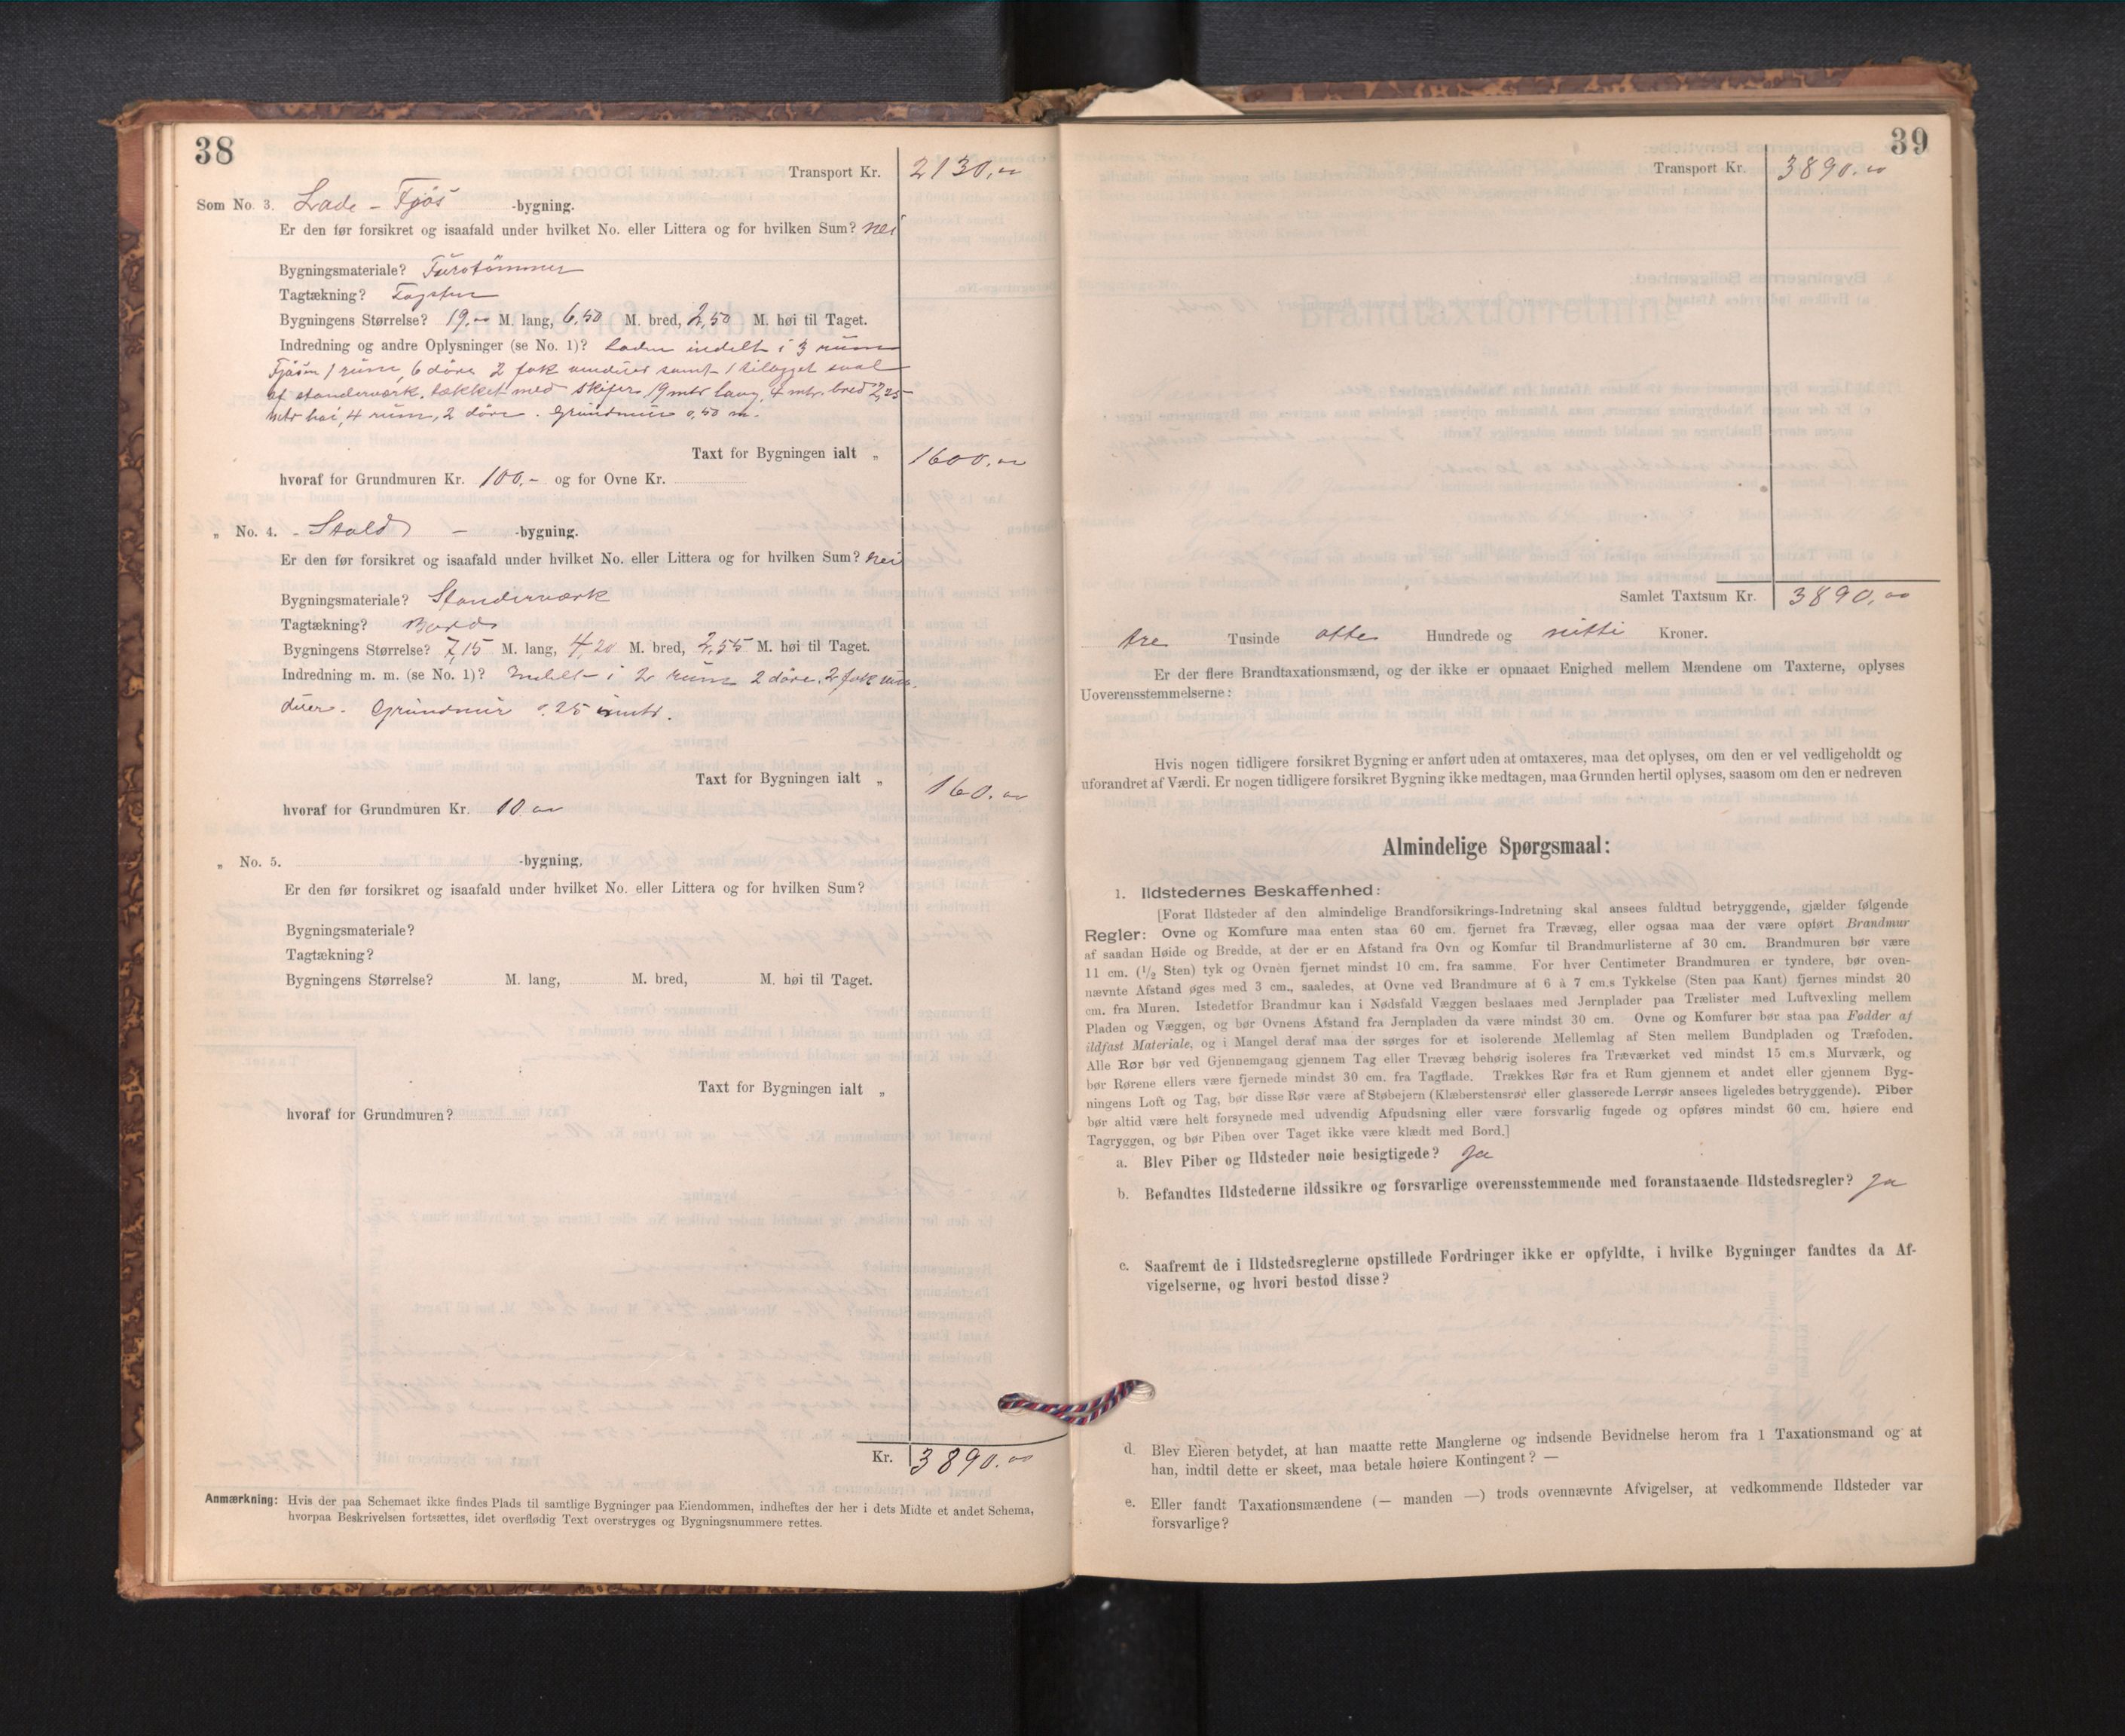 38
Transport Kr. 2130,00
Som No. 3. Lade - Fjøs -bygning.
Er den før forsikret og isaafald under hvilket No. eller Littera og for hvilken Sum? nei
Bygningsmateriale? Furutømmer
Tagtækning? Tagsten
Bygningens Størrelse? 19,00 M. lang, 6,50 M. bred, 2,50 M. høi til Taget.
Indredning og andre Oplysninger (se No. 1)? Laden indelt i 3 rum
Fjøsen 1 rum, 6 døre 2 fak vinduer samt 1 tilbygget sval
af standerværk, tækket med skifer 19 mtr lang, 4 mtr. bred 2,25
mtr høi, 4 rum, 2 døre. Grundmur 0,50 m.
Taxt for Bygningen ialt „ 1600,00
hvoraf for Grundmuren Kr. 100.- og for Ovne Kr.
„ No. 4. - Stald - -bygning.
Er den før forsikret og isaafald under hvilket No. eller Littera og for hvilken Sum? nei
Bygningsmateriale? Standerværk
Tagtækning? Bord
Bygningens Størrelse? 7,15 M. lang, 4,20 M. bred, 2,55 M. høi til Taget.
Indredning m. m. (se No. 1)? Indelt i 2 rum 2 døre, 2 fak vin-
duer. Grundmur 0.25 mtr.
Taxt for Bygningen ialt „ 160,00
hvoraf for Grundmuren Kr. 10 00
„ No. 5. -bygning.
Er den før forsikret og isaafald under hvilket No. eller Littera og for hvilken Sum?
Bygningsmateriale?
Tagtækning?
Bygningens Størrelse? M. lang, M. bred, M. høi til Taget.
Taxt for Bygningen ialt „
hvoraf for Grundmuren?
Kr. 3890.00
Anmærkning: Hvis der paa Schemaet ikke findes Plads til samtlige Bygninger paa Eiendommen, indheftes der her i dets Midte et andet Schema,
hvorpaa Beskrivelsen fortsættes, idet overflødig Text overstryges og Bygningsnummere rettes.
39
Transport Kr. 3890.00
Samlet Taxtsum Kr. 3890,00
tre Tusinde otte Hundrede og nitti Kroner.
Er der flere Brandtaxationsmænd, og der ikke er opnaaet Enighed mellem Mændene om Taxterne, oplyses
Uoverensstemmelserne:
Hvis nogen tidligere forsikret Bygning er anført uden at omtaxeres, maa det oplyses, om den er vel vedligeholdt og
uforandret af Værdi. Er nogen tidligere forsikret Bygning ikke medtagen, maa Grunden hertil oplyses, saasom om den er nedreven
Almindelige Spørgsmaal:
1. Ildstedernes Beskaffenhed:
[Forat Ildsteder af den almindelige Brandforsikrings-Indretning skal ansees fuldtud betryggende, gjælder følgende
Regler: Ovne og Komfure maa enten staa 60 cm. fjernet fra Trævæg, eller ogsaa maa der være opført Brandmur
af saadan Høide og Bredde, at der er en Afstand fra Ovn og Komfur til Brandmurlisterne af 30 cm. Brandmuren bør være
11 cm. (1/2 Sten) tyk og Ovnen fjernet mindst 10 cm. fra samme. For hver Centimeter Brandmuren er tyndere, bør oven-
nævnte Afstand øges med 3 cm., saaledes, at Ovne ved Brandmure af 6 à 7 cm.s Tykkelse (Sten paa Kant) fjernes mindst 20
cm. fra Muren. Istedetfor Brandmur kan i Nødsfald Væggen beslaaes med Jernplader paa Trælister med Luftvexling mellem
Pladen og Væggen, og bør Ovnens Afstand fra Jernpladen da være mindst 30 cm. Ovne og Komfurer bør staa paa Fødder af
ildfast Materiale, og i Mangel deraf maa der sørges for et isolerende Mellemlag af Sten mellem Bundpladen og Træfoden.
Alle Rør bør ved Gjennemgang gjennem Tag eller Trævæg behørig isoleres fra Træværket ved mindst 15 cm.s Murværk, og
bør Rørene ellers være fjernede mindst 30 cm. fra Tagflade. Trækkes Rør fra et Rum gjennem et andet eller gjennem Byg-
ningens Loft og Tag, bør disse Rør være af Støbejern (Klæberstensrør eller glasserede Lerrør ansees ligeledes betryggende). Piber
bør altid være helt forsynede med udvendig Afpudsning eller være forsvarlig fugede og opføres mindst 60 cm. høiere end
Tagryggen, og bør Piben over Taget ikke være klædt med Bord.]
a. Blev Piber og Ildsteder nøie besigtigede? Ja
b. Befandtes Ildstederne ildssikre og forsvarlige overensstemmende med foranstaaende Ildstedsregler? Ja
c. Saafremt de i Ildstedsreglerne opstillede Fordringer ikke er opfyldte, i hvilke Bygninger fandtes da Af-
vigelserne, og hvori bestod disse?
d. Blev Eieren betydet, at han maatte rette Manglerne og indsende Bevidnelse herom fra 1 Taxationsmand og at
han, indtil dette er skeet, maa betale høiere Kontingent? —
e. Eller fandt Taxationsmændene (— manden —) trods ovennævnte Afvigelser, at vedkommende Ildsteder var
forsvarlige?